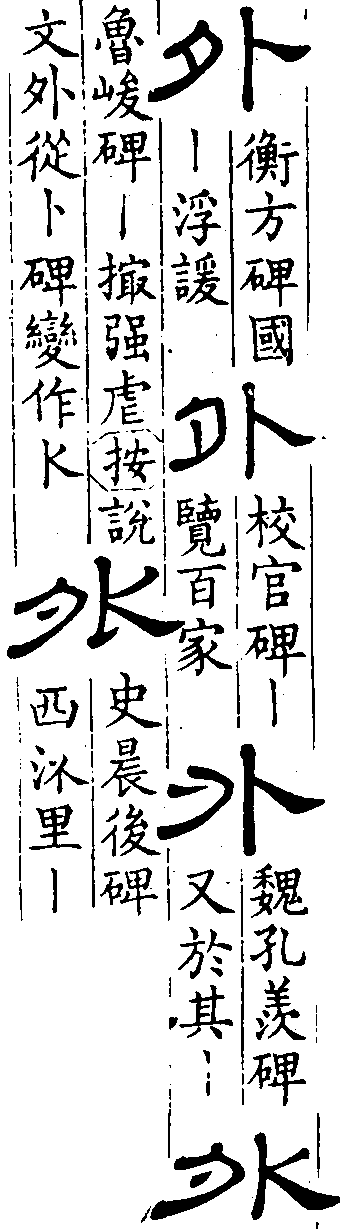 外
衡方碑國
丨浮諼
外
校官碑丨
覽百家
外
魏孔羨碑
又於其丨
外
魯峻碑丨撮强虐按說
文外從卜碑變作K
外
史晨後碑
西㳅里丨